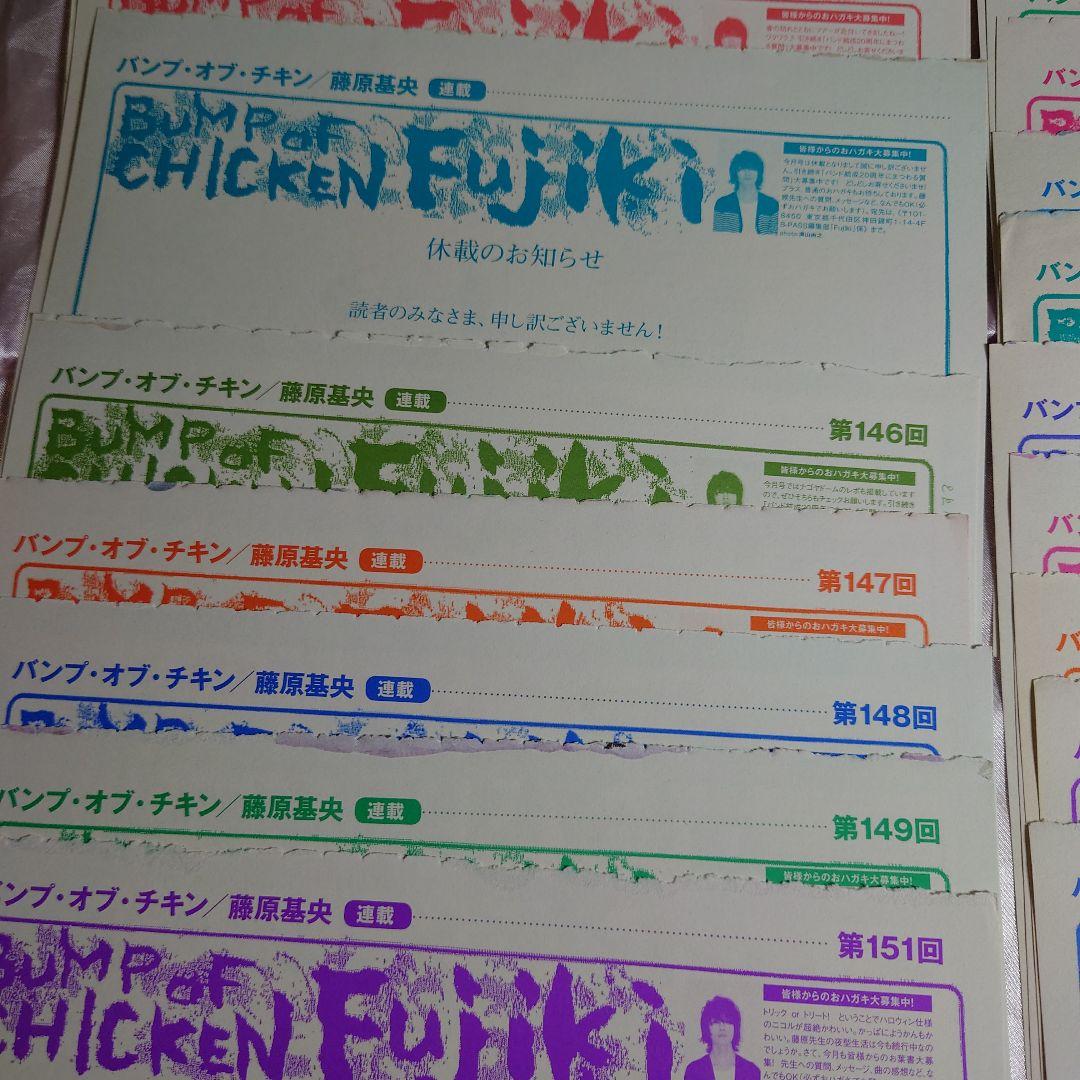 皆様からのおハガキ大募集中!
バンプ・オブ・チキン/藤原基央 連載
BUMP OF
CHICKEN Fujiki
皆様からのおハガキ大募集中!
今月号は休載となりまして誠に申し訳ございませ
ん。引き続き「バンド結成20周年にまつわる質
問」大募集中です! どしどしお寄せくださいませ!
プラス、普通のおハガキもお待ちしております。藤
原先生への質問、メッセージなど、なんでもOK(必
ずおハガキでお願いします)。宛先は、(〒101-
8450 東京都千代田区神田錦町1-14-4F
B-PASS編集部「Fujiki」係) まで。
休載のお知らせ
読者のみなさま、申し訳ございません!
バンプ・オブ・チキン/藤原基央 連載 第146回
BUMP OF
CHICKEN Fujiki
皆様からのおハガキ大募集中!
今月号ではナゴヤドームのレポも掲載しています
ので、ぜひそちらもチェックお願いします。引き続き
バンプ・オブ・チキン/藤原基央 連載 第147回
皆様からのおハガキ大募集中!
バンプ・オブ・チキン/藤原基央 連載 第148回
バンプ・オブ・チキン/藤原基央 連載 第149回
皆様からのおハガキ大募集中!
バンプ・オブ・チキン/藤原基央 連載 第151回
BUMP OF
CHICKEN Fujiki
皆様からのおハガキ大募集中!
トリック or トリート! ということでハロウィン仕様
のニコルが超絶かわいい。かっぱにようかんもか
わいい。藤原先生の夜型生活は今も続行中なの
でしょうか。さて、今月も皆様からのお葉書大募
集! 先生への質問、メッセージ、曲の感想など、な
バン
バン
バン
バンプ
バン
バ